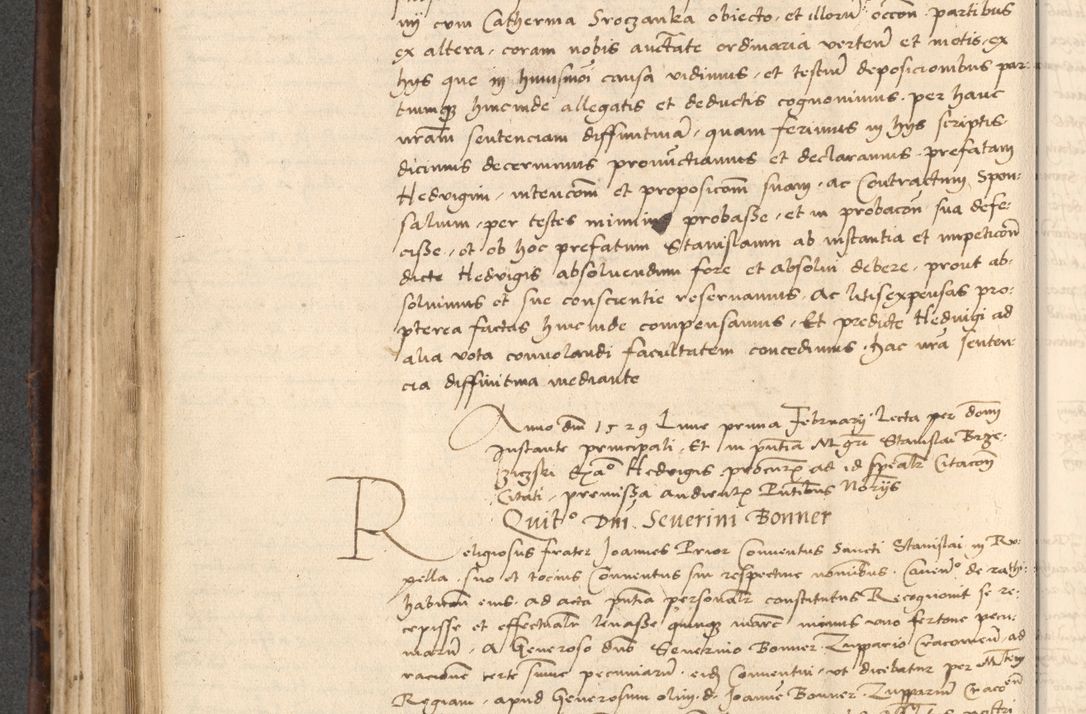 iiij cum Catherina Sroczanka obiecto, et illorum occon. partibus
ex altera, coram nobis auctate ordinaria verten et motis, ex
hys que in huiusmoi causa vidimus, et testium deposicionibus par-
tiumqz hincinde allegatis et deductis cognovimus, per hanc
nram sentenciam diffinitivam, quam ferimus in hys scriptis
dicimus decernimus pronunctiamus et declaramus, prefatam
Hedvigim, intencom et proposicom suam, ac Contractum Spon-
salium, per testes minime probasse, et in probacon sua defe-
cisse, et ob hoc prefatum Stanislaum ab instantia et impeticon
dicte Hedvigis absolvendum fore et absolvi debere, prout ab-
solvimus et sue conscientie reservamus, Ac litis expensas pro-
pterea factas hincinde compensamus, Et predicte Hedvigi ad
alia vota convolandi facultatem concedimus, hac nra senten-
cia diffinitiva mediante
Anno dni 1529 Lune prima Februarij Lecta per domi
Instante principali, Et in pntia M. gri Stanislai Brze-
ziczski Exao Hedvigis procur ad id spealr Citacon
Citati, premissa audien Pntibus Norijs
Quito Dni Severini Bonner
Religiosus frater Joannes Prior Conventus Sancti Stanislai in Ru-
pella, suo et tocius Conventus sui respective nominibus, Caven de rathi-
habicon eius, ad acta pntia personalr constitutus Recognovit se re-
cepisse et effectualr levasse quinqz marc minus uno fertone pecu-
niarum, A Generoso dno Severino Bonner Zuppario Cracovien, ad
racione certe sume pecuniarum, eid Conventui, ut dicebatur per Mtem
Regiam, apud Generosum olim d. Joanne Bonner Zupparium Cracoen